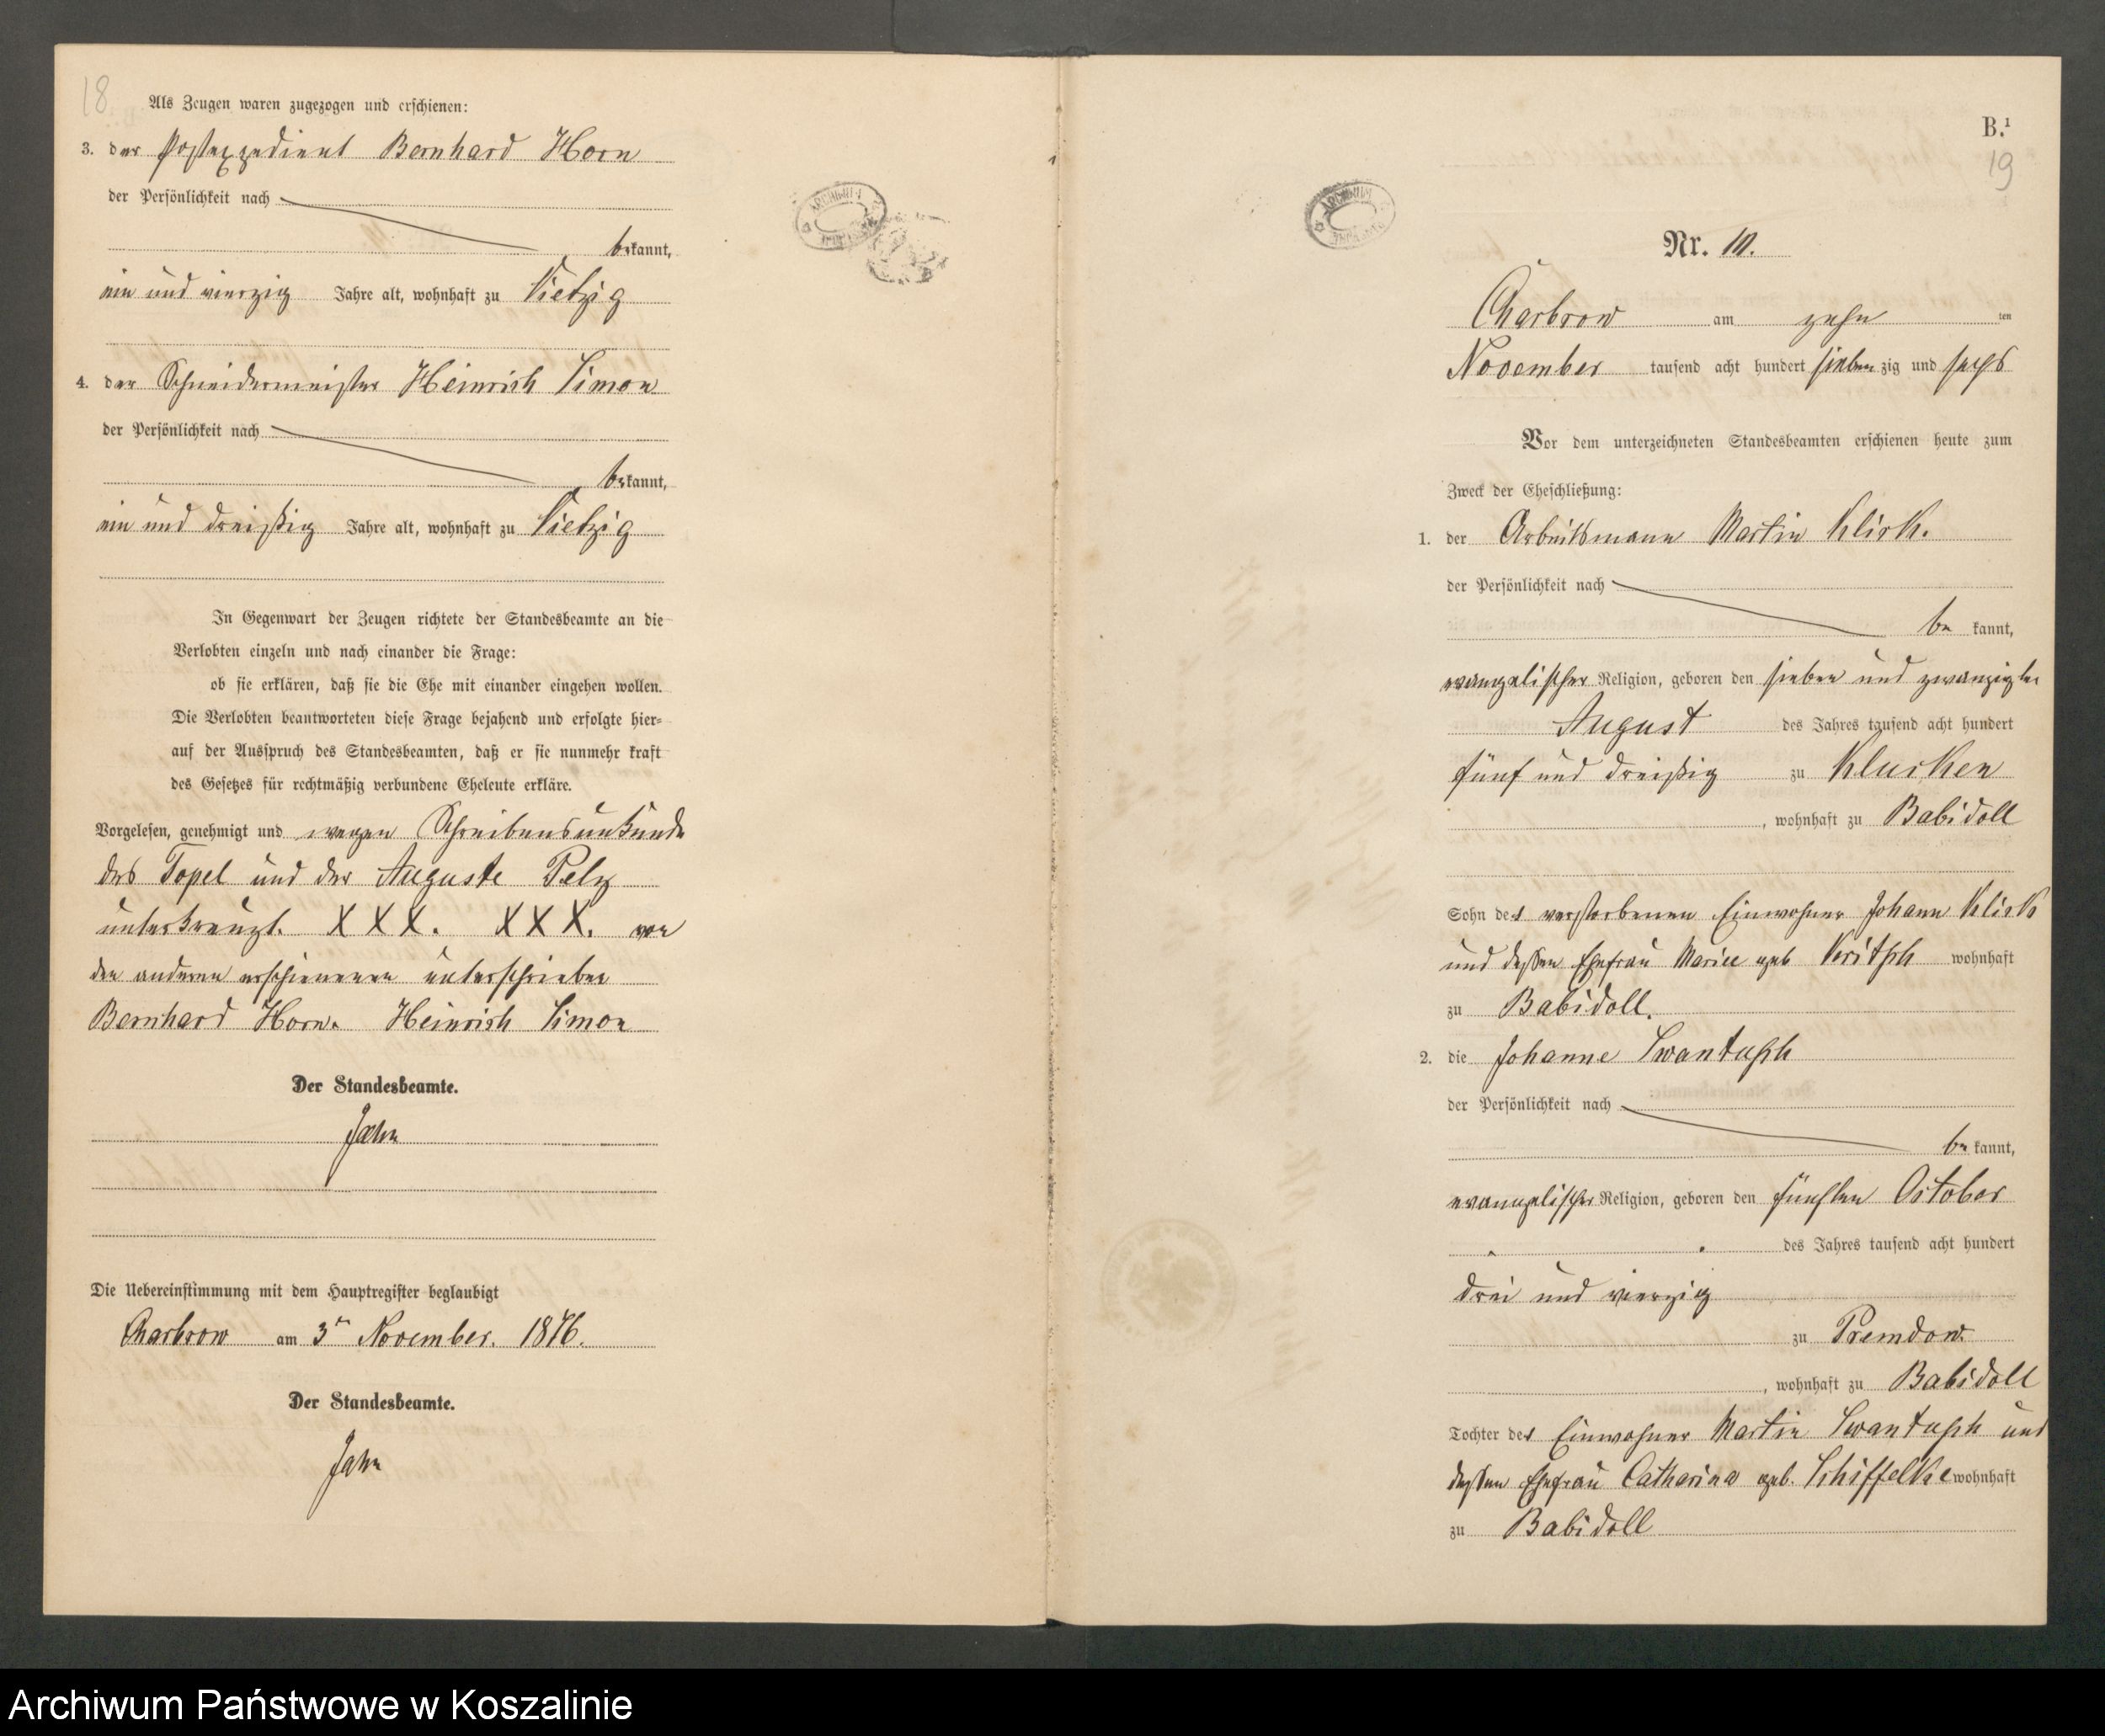 18
Als Zeugen waren zugezogen und erschienen:
3. der Postexpedient Bernhard Horn
der Persönlichkeit nach
bekannt,
ein und vierzig Jahre alt, wohnhaft zu Vietzig
4. der Schneidermeister Heinrich Simon
der Persönlichkeit nach
bekannt,
ein und dreißig Jahre alt, wohnhaft zu Vietzig
In Gegenwart der Zeugen richtete der Standesbeamte an die
Verlobten einzeln und nach einander die Frage:
ob sie erklären, daß sie die Ehe mit einander eingehen wollen.
Die Verlobten beantworteten diese Frage bejahend und erfolgte hier-
auf der Ausspruch des Standesbeamten, daß er sie nunmehr kraft
des Gesetzes für rechtmäßig verbundene Eheleute erkläre.
Vorgelesen, genehmigt und wegen Schreibensunkunde
des Topel und der Auguste Pelz
unterkreuzt. X X X. X X X. von
den anderen erschienenen unterschrieben
Bernhard Horn. Heinrich Simon
Der Standesbeamte.
Jahn
Die Uebereinstimmung mit dem Hauptregister beglaubigt
Charbrow am 3ten November. 1876.
Der Standesbeamte.
Jahn
B.¹
19
Nr. 10.
Charbrow am zehn ten
November tausend acht hundert siebenzig und sechs
Vor dem unterzeichneten Standesbeamten erschienen heute zum
Zweck der Eheschließung:
1. der Arbeitsmann Martin Klick.
der Persönlichkeit nach
be kannt,
evangelischer Religion, geboren den sieben und zwanzigsten
August des Jahres tausend acht hundert
fünf und dreißig zu Klucken
, wohnhaft zu Babidoll
Sohn des verstorbenen Einwohner Johann Klick
und dessen Ehefrau Marie geb wohnhaft
zu Babidoll.
2. die Johanne
der Persönlichkeit nach
be kannt,
evangelischer Religion, geboren den fünften October
des Jahres tausend acht hundert
drei und vierzig
zu Premdow.
, wohnhaft zu Babidoll
Tochter des Einwohner Martin und
dessen Ehefrau Catharina geb. Schiffelke wohnhaft
zu Babidoll
Archiwum Państwowe w Koszalinie